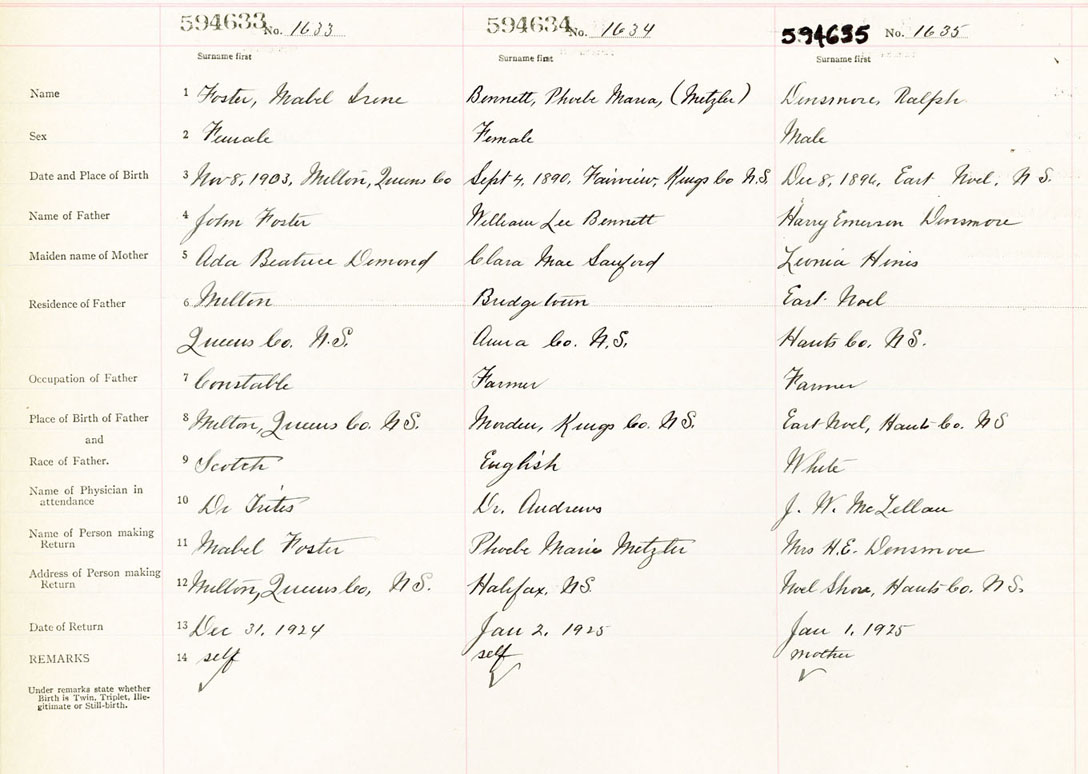 594633 No. 1633 594634 No. 1634 594635 No. 1635
Surname first Surname first Surname first
Name 1 Foster, Mabel Irene Bennett, Phoebe Maria, (Metzler) Densmore, Ralph
Sex 2 Female Female Male
Date and Place of Birth 3 Nov 8, 1903, Milton, Queens Co Sept 4, 1890, Fairview, Kings Co N.S. Dec 8, 1896, East Noel, N.S.
Name of Father 4 John Foster William Lee Bennett Harry Emerson Densmore
Maiden name of Mother 5 Ada Beatrice Demond Clara Mae Sanford Leonia Hines
Residence of Father 6 Milton Bridgetown East Noel
Queens Co. N.S. Anna Co. N.S. Hants Co. N.S.
Occupation of Father 7 Constable Farmer Farmer
Place of Birth of Father 8 Milton, Queens Co. N.S. Morden, Kings Co. N.S. East Noel, Hants Co. N.S
and
Race of Father. 9 Scotch English White
Name of Physician in
attendance 10 Dr Dr. Andrews J. W. McLellan
Name of Person making
Return 11 Mabel Foster Phoebe Marie Metzler Mrs H.E. Densmore
Address of Person making
Return 12 Milton, Queens Co, N.S. Halifax, N.S. Noel Shore, Hants Co. N.S.
Date of Return 13 Dec 31, 1924 Jan 2, 1925 Jan 1, 1925
REMARKS 14 self self mother
Under remarks state whether
Birth is Twin, Triplet, Ille-
gitimate or Still-birth.